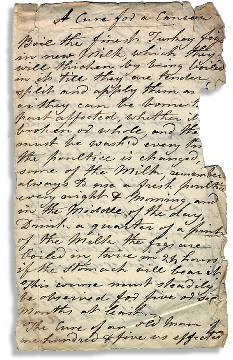 A Cure for a Cancer
Boil the finest Turkey figs
in new Milk, which they
will thicken by being boiled
in it till they are tender,
split and apply them as
as they can be borne to
part affected whether it
broken or whole and the
must be wash'd every time
the poultice is changed
some of the Milk, remember
always to use a fresh poultice
every night & Morning and
in the Middle of the day,
Drink a quarter of a pint
of the Milk the figs are
boiled in twice in 24 hours
if the Stomach will bear it,
this course must steadily
be observed for five or six
Months at least.
The Cure of an old Man of
one hundred & five is effected